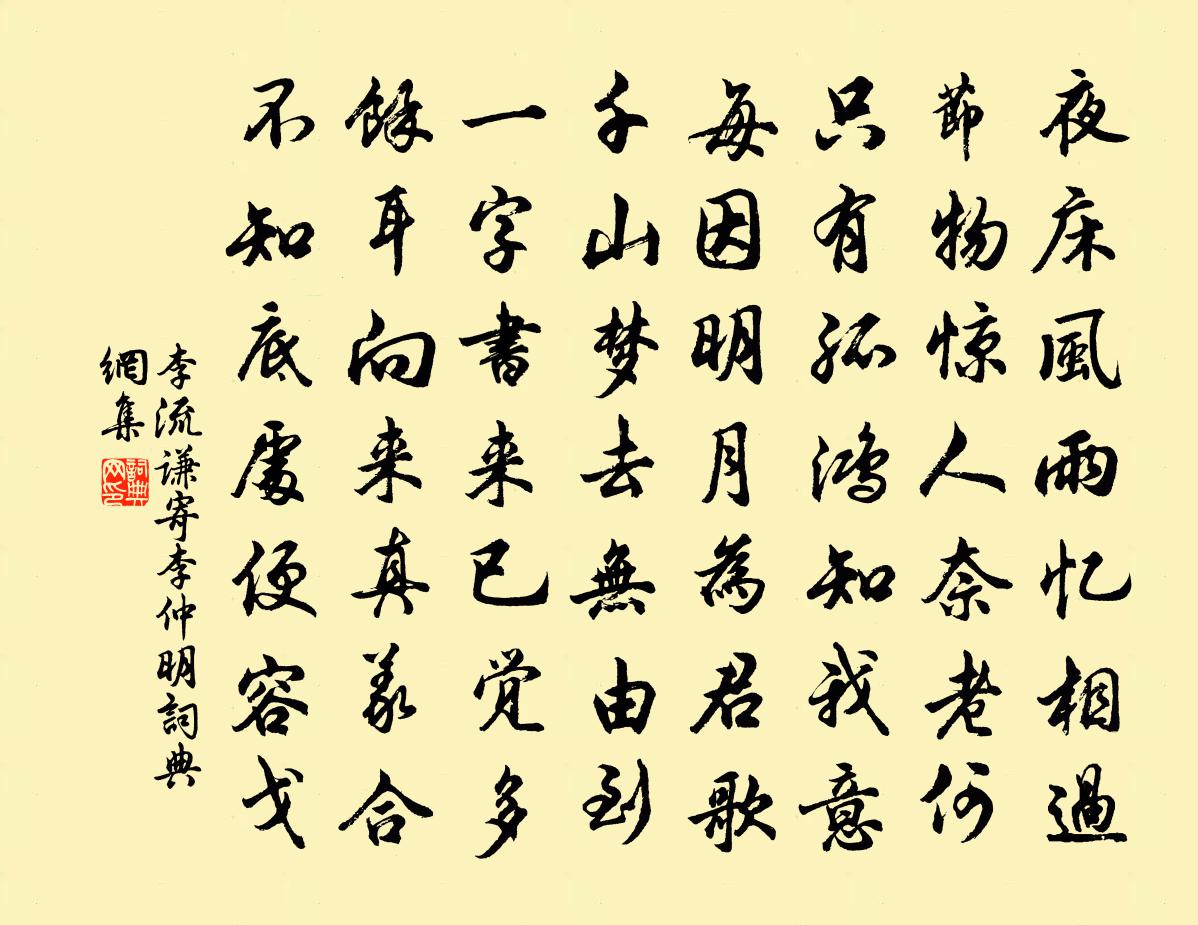 夜床風雨忆相過
節物惊人奈老何
只有孤鴻知我意
每因明月為君歌
千山梦去無由到
一字書来已觉多
餘耳向来真義合
不知底處便容戈
李流谦寄李仲明詞典
網集
詞典
网印